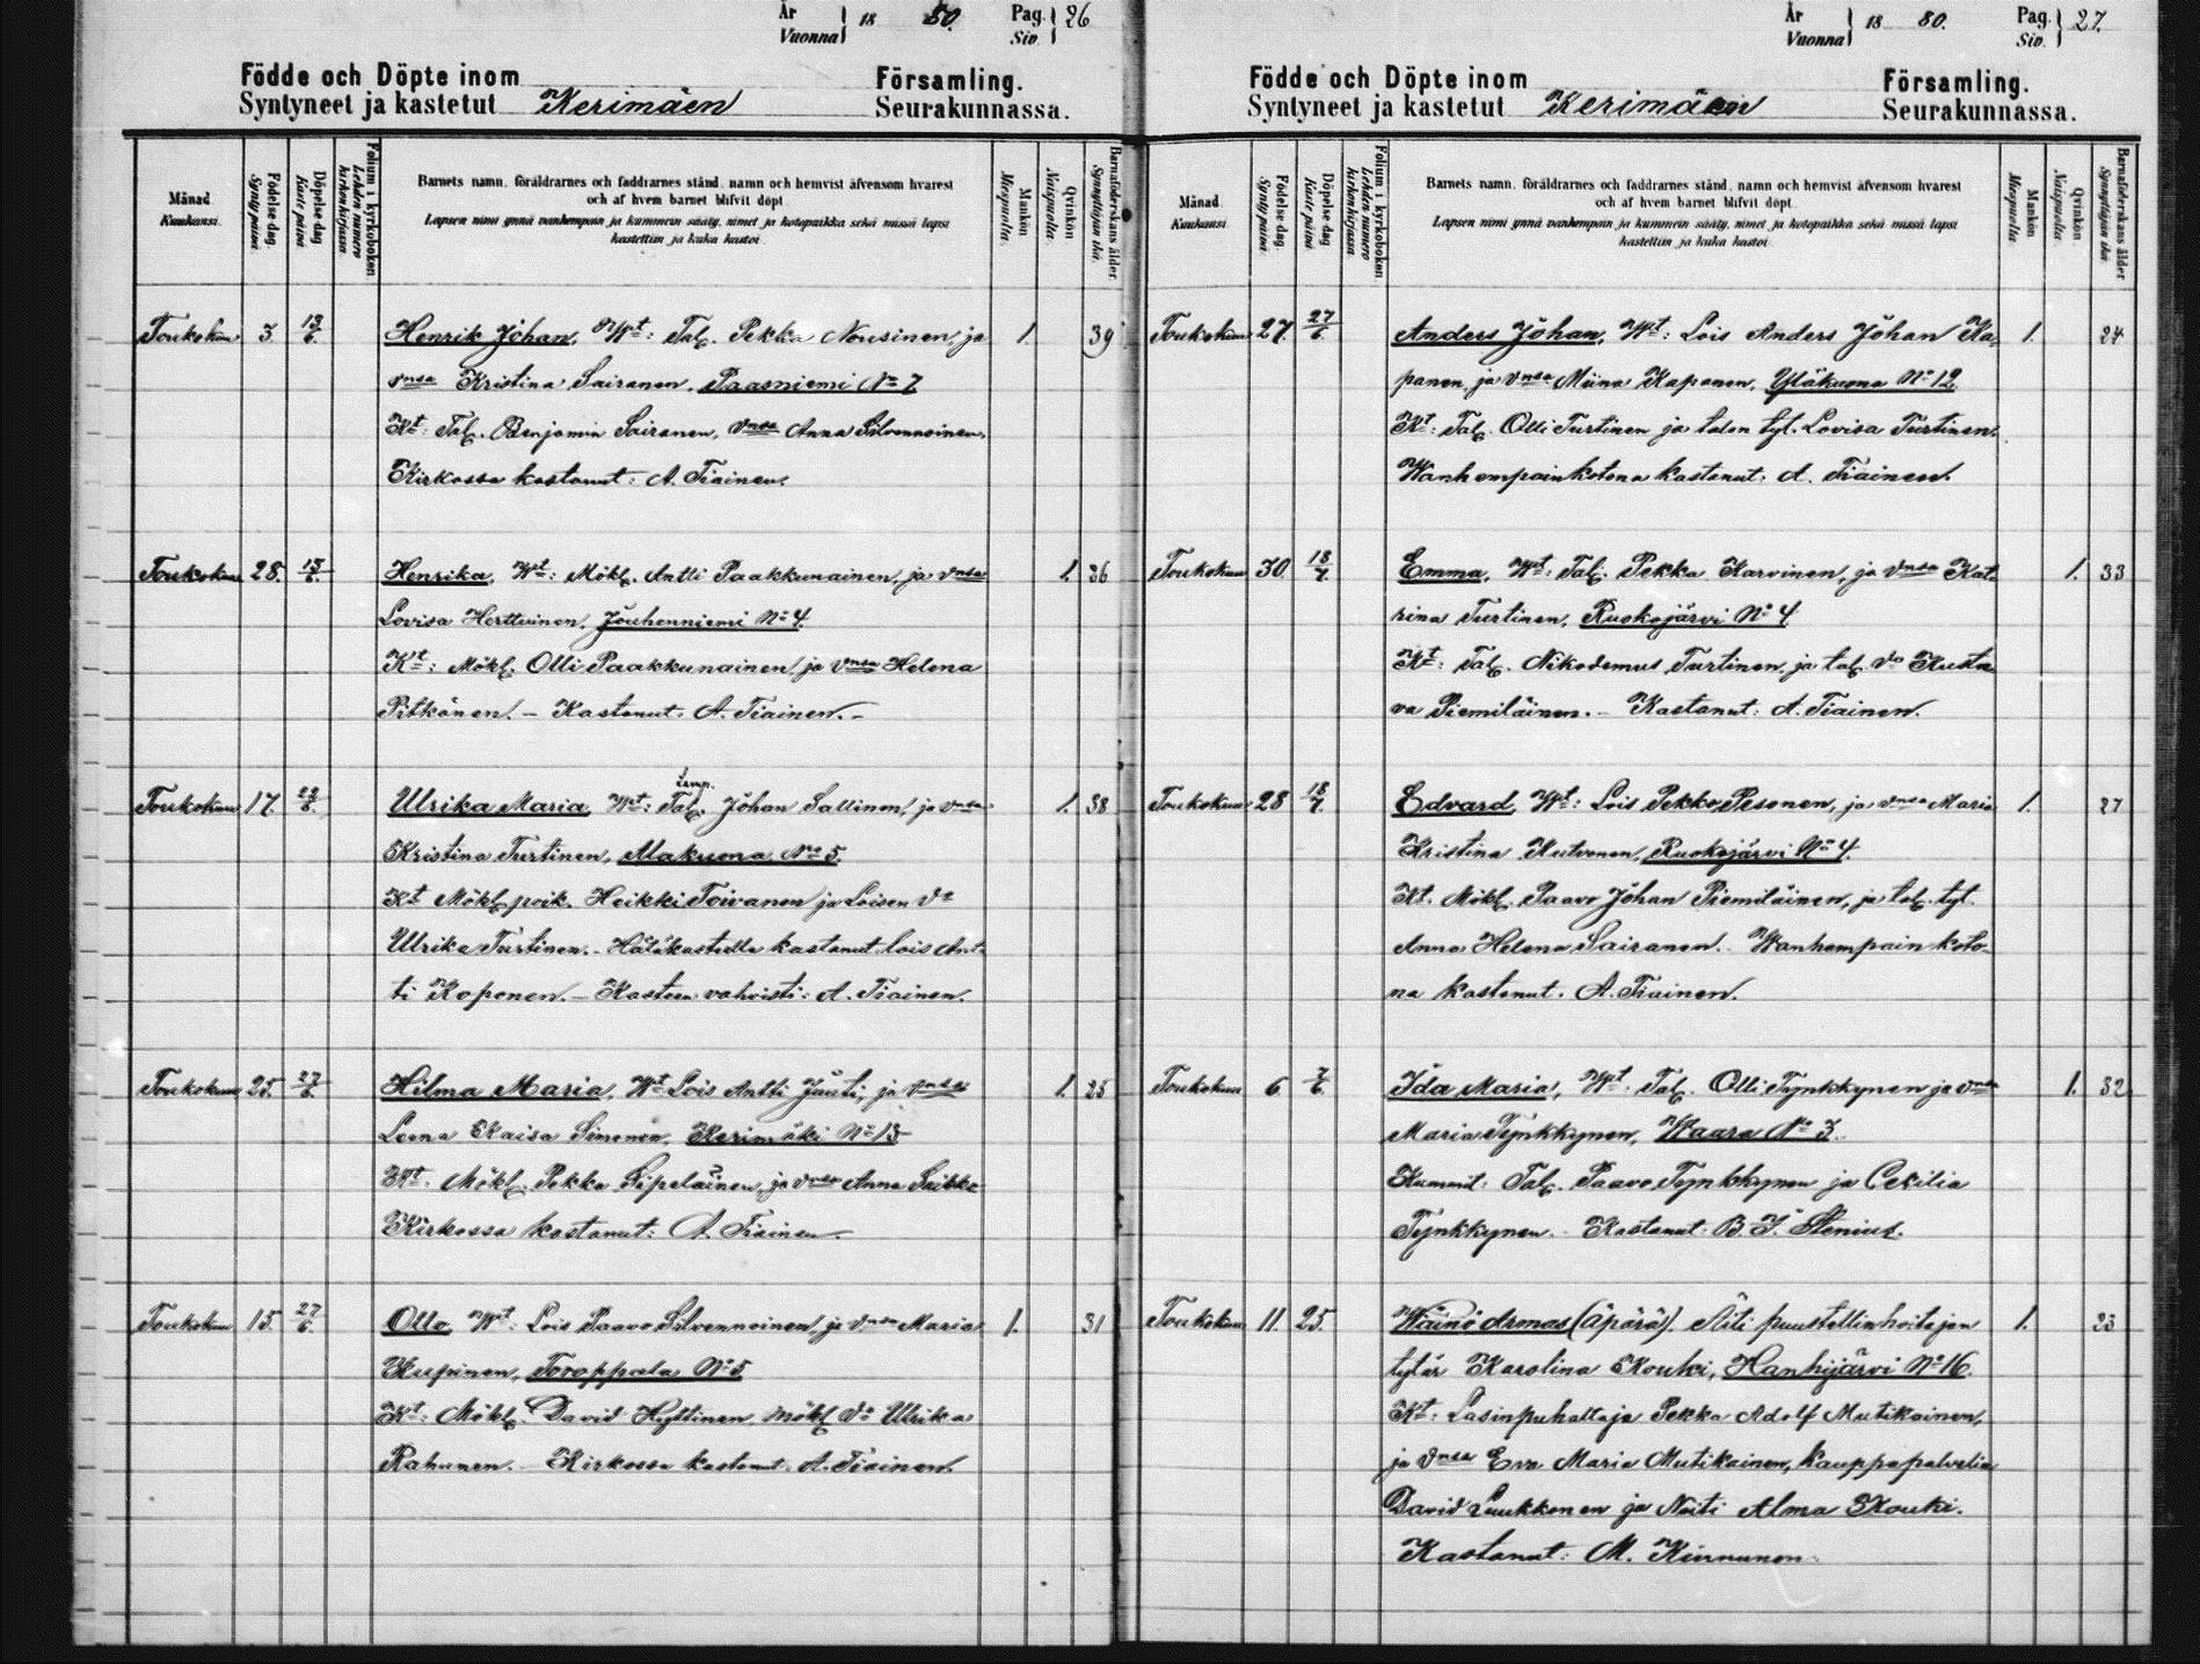 År Vuonna 18 80. Pag. Siv. 26
Födde och Döpte inom Församling.
Syntyneet ja kastetut Kerimäen Seurakunnassa.
Månad Kuukausi.
Födelse dag. Synty päivä.
Döpelse dag Kaste päivä.
Folium i kyrkoboken Lehden numero kirkonkirjassa
Barnets namn, föräldrarnes och faddrarnes stånd, namn och hemvist äfvensom hvarest
och af hvem barnet blifvit döpt.
Lapsen nimi ynnä vanhempain ja kummein sääty, nimet ja kotopaikka sekä missä lapsi
kastettiin ja kuka kastoi
Mankön Miespuolta.
Qvinkön Naispuolta.
Barnaföderskans ålder. Synnyttäjän ikä.
Toukokuu 3 13/6. Henrik Johan, Wt: Tal. Pekka Nousinen, ja 1. 39
vnsa Kristina Sairanen, Paasniemi No 7
Kt: Tal. Benjamin Sairanen, vnsa Anna Silvennoinen.
Kirkossa kastanut: A. Tiainen.
Toukokuu 28. 13/6. Henrika, Wt: Mökl. Antti Paakkunainen, ja vnsa 1. 36
Lovisa Herttuinen, Jouhenniemi No 4.
Kt: Mökl. Olli Paakkunainen, ja vnsa Helena
Pitkänen. - Kastanut: A. Tiainen. -
Lamp.
Toukokuu 17. 22/6. Ulrika Maria Wt: Tal. Johan Sallinen, ja vnsa 1. 38
Kristina Turtinen, Alakuona No 5.
Kt Mökl. poik. Heikki Toivanen ja Loisen vo
Ulrika Turtinen. - Hätäkasteella kastanut lois Ant-
ti Koponen. - Kasteen vahvisti: A. Tiainen.
Toukokuu 25. 27/6. Hilma Maria, Wt Lois Antti Jäuti, ja vnsa 1. 25
Leena Kaisa Simonen, Kerimäki No 13
Kt. Mökl. Pekka Sipeläinen, ja vnsa Anna Saikko
Kirkossa kastanut: A. Tiainen.
Toukokuu 15. 27/6. Olla Wt: Lois Paavo Silvennoinen, ja vnsa Maria 1. 31
Kupinen, Toroppala No 5
Kt: Mökl. David Hyttinen mökl. vo Ulrika
Rahunen. - Kirkossa kastanut. A. Tiainen.
År Vuonna 18 80. Pag. Siv. 27.
Födde och Döpte inom Församling.
Syntyneet ja kastetut Kerimäen Seurakunnassa.
Månad Kuukausi
Födelse dag. Synty päivä.
Döpelse dag Kaste päivä.
Folium i kyrkoboken Lehden numero kirkonkirjassa
Barnets namn, föräldrarnes och faddrarnes stånd, namn och hemvist äfvensom hvarest
och af hvem barnet blifvit döpt.
Lapsen nimi ynnä vanhempain ja kummein sääty, nimet ja kotopaikka sekä missä lapsi
kastettiin ja kuka kastoi
Mankön Miespuolta
Qvinkön Naispuolta
Barnaföderskans ålder Synnyttäjän ikä.
Toukokuu 27. 27/6. Anders Johan, Wt: Lois Anders Johan Ka- 1. 24
panen, ja vnsa Miina Kapanen, Yläkuona No 12.
Kt: Tal. Olli Turtinen ja talon tyt. Lovisa Turtinen.
Wanhempainkotona kastanut: A. Tiainen.
Toukokuu 30. 18/7. Emma, Wt: Tal. Pekka Karvinen, ja vnsa Kat- 1. 33
rina Turtinen, Ruokojärvi No 4
Kt: Tal. Nikodemus Turtinen ja tal. vo Kusta-
va Piemiläinen. - Kastanut: A. Tiainen.
Toukokuu 28 18/7. Edvard, Wt: Lois Pekko Pesonen, ja vnsa Maria 1. 27
Kristina Kutvonen, Ruokojärvi No 4.
Kt. Mökl. Paavo Johan Piemiläinen, ja tal. tyt.
Anna Helena Sairanen. - Wanhempain koto-
na kastanut. A. Tiainen.
Toukokuu 6. 7/6. Ida Maria, Wt. Tal. Olli Tynkkynen ja vnsa 1. 32
Maria Tynkkynen, Waara No 3.
Kummit: Tal. Paavo Tynkkynen ja Cecilia
Tynkkynen. - Kastanut. B. J. Stenius.
Toukokuu 11. 25. Wäinö Armas (äpärä). Äiti puustellinhoitajan 1. 23
tytär Karolina Skouki, Hanhijärvi No 16.
Kt: Lasinpuhaltaja Pekka Adolf Mutikainen,
ja vnsa Eva Maria Mutikainen, kauppapalvelia
David Luukkonen ja Neiti Alma Skouki.
Kastanut: M. Kiurunen.